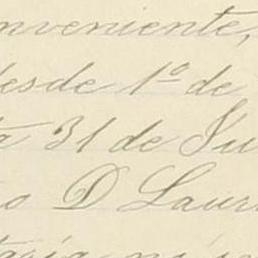 nveniente,
desde 1º de
a 31 de Ju
o D Laur
taria